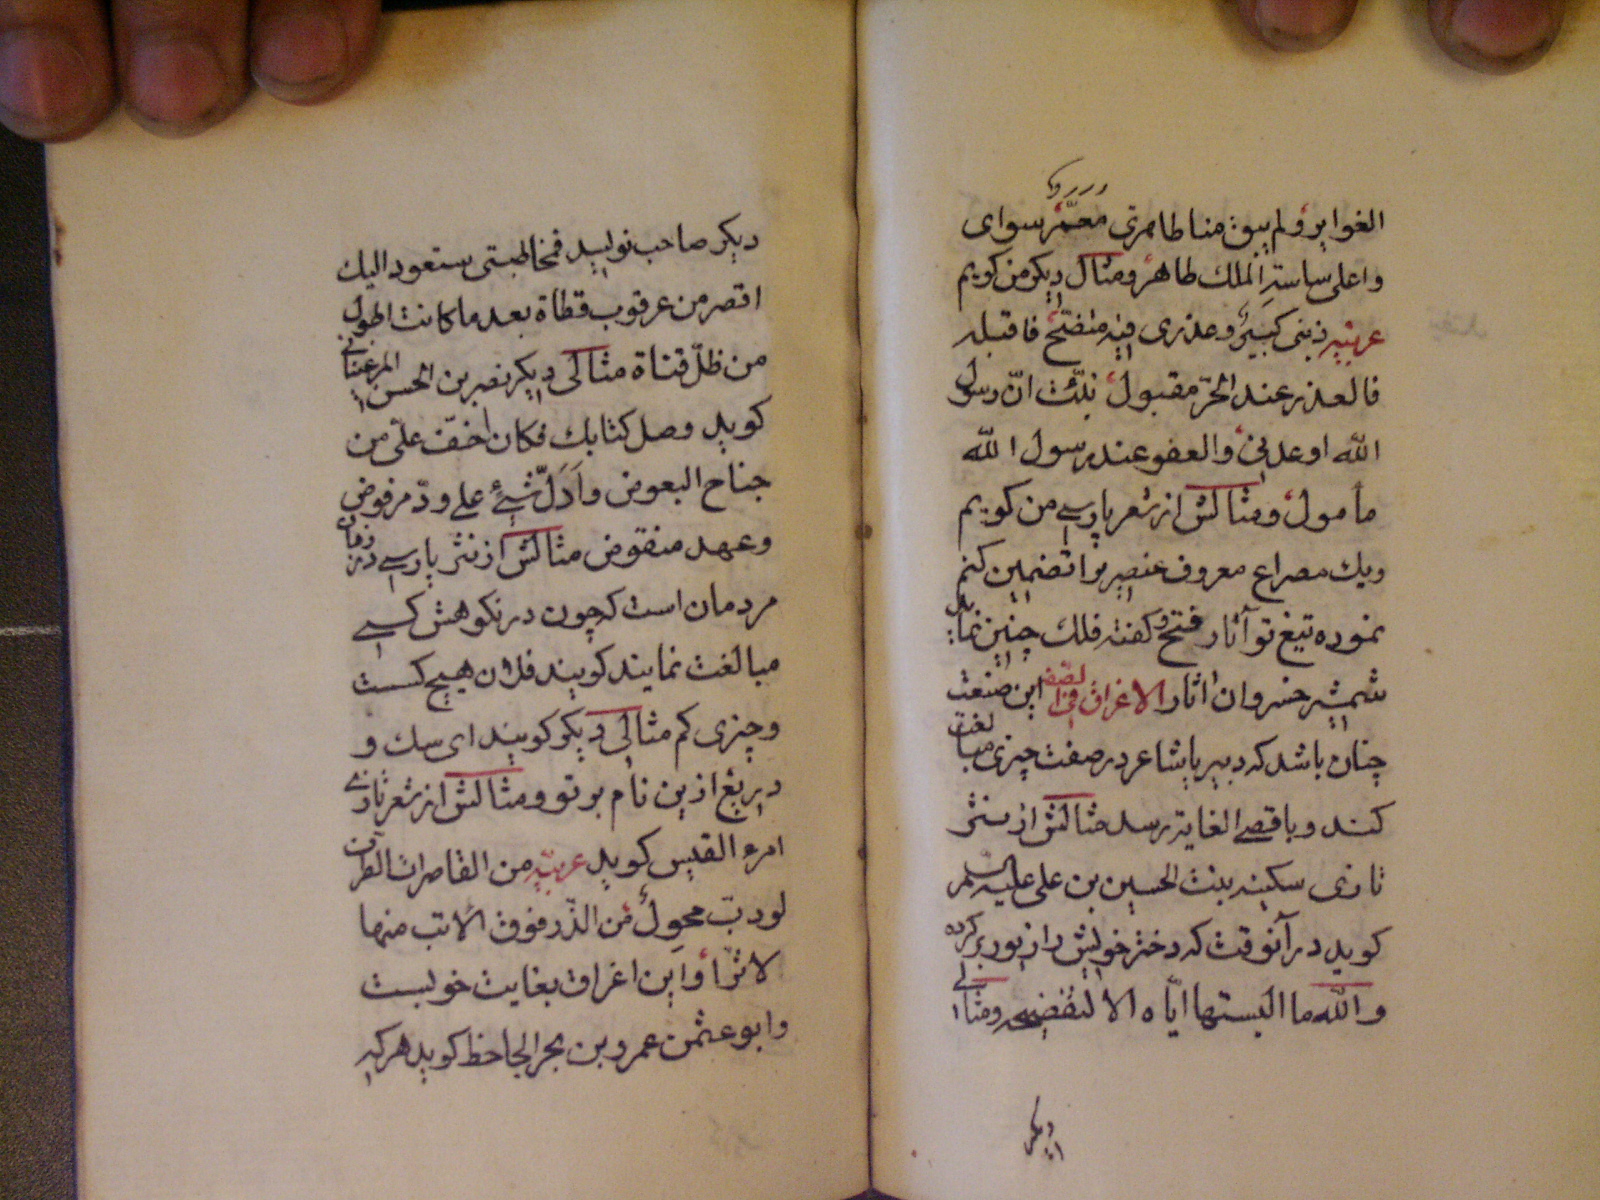 الغوابر ولم يبق منا طاهري معمر سواى
واعلى ساسة الملك طاهر ومثال ديكر من كويم
عربيه ذنبى كبير وعذرى فيه متضح فاقبله
فالعذر عند الحر مقبول نبئت ان رسول
الله اوعدنى والعفو عند رسول الله
مأمول ومثالش از شعر پارسى من كويم
ويك مصراع معروف عنصرى را تضمين كنم
نموده تيغ تو آثار فتح وكفته فلك چنين نمايد
شمشير خسروان اثار الاغراق فى الصفه اين صنعت
چنان باشد كه دبير يا شاعر در صفت چيزى مبالغت
كند وباقصى الغاية رسد مثالش از نثر
تازى سكينه بنت الحسين بن على عليه السلم
كويد در آنوقت كه دختر خويش را زيور بر كرده
والله ما البستها اياه الا لتفضحه ومثالى
ديكر
ديكر صاحب نوليد فخاطبتى ستعود اليك
اقصر من عرقوب قطاة بعد ما كانت اطول
من ظل قناة مثالى ديكر نصر بن الحسن المرغينانى
كويد وصل كتابك فكان اخف على من
جناح البعوض وادل شئ على ود مرفوض
وعهد منقوض مثالش از نثر پارسى در زفان
مردمان است كه چون در نكوهش كسى
مبالغت نمايند كويند فلان هيچ كسست
وچيزى كم مثالى ديكر كويند اى سك و
دريغ ازين نام بر تو ومثالش از شعر تازى
امرء القيس كويد عربيه من القاصرات الطرف
لو دب محول من الذر فوق الاتب منها
لاثرا واين اغراق بغايت خوبست
وابو عثمن عمرو بن بحر الجاحظ كويد هر كه